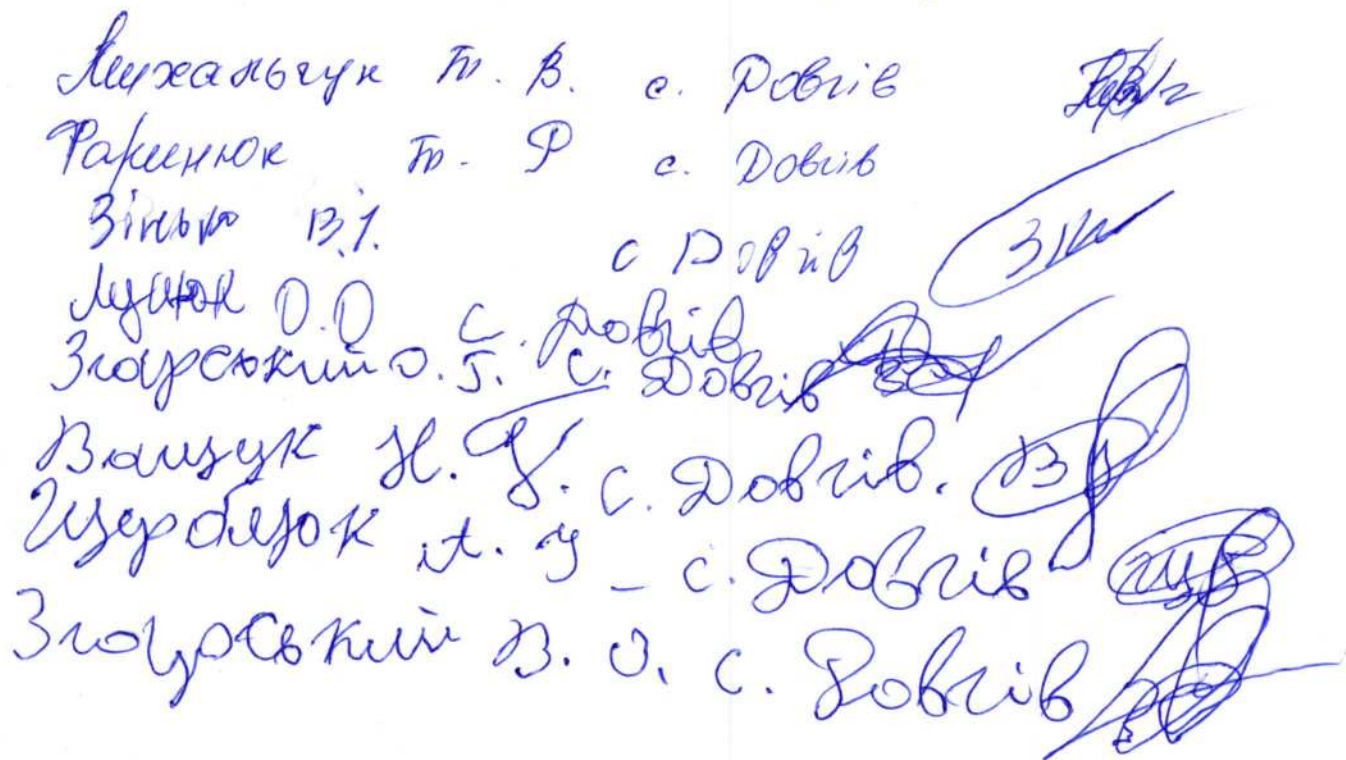 Михальчук Т. В. с. Довгів
Т. Р с. Довгів
Зінько В.І. с Довгів
Луцюк О.О с. Довгів
Згарський О. Г. с. Довгів
Ващук Н. У. с. Довгів.
Щерблюк А. У - с. Довгів
Згарський В. О. с. Довгів